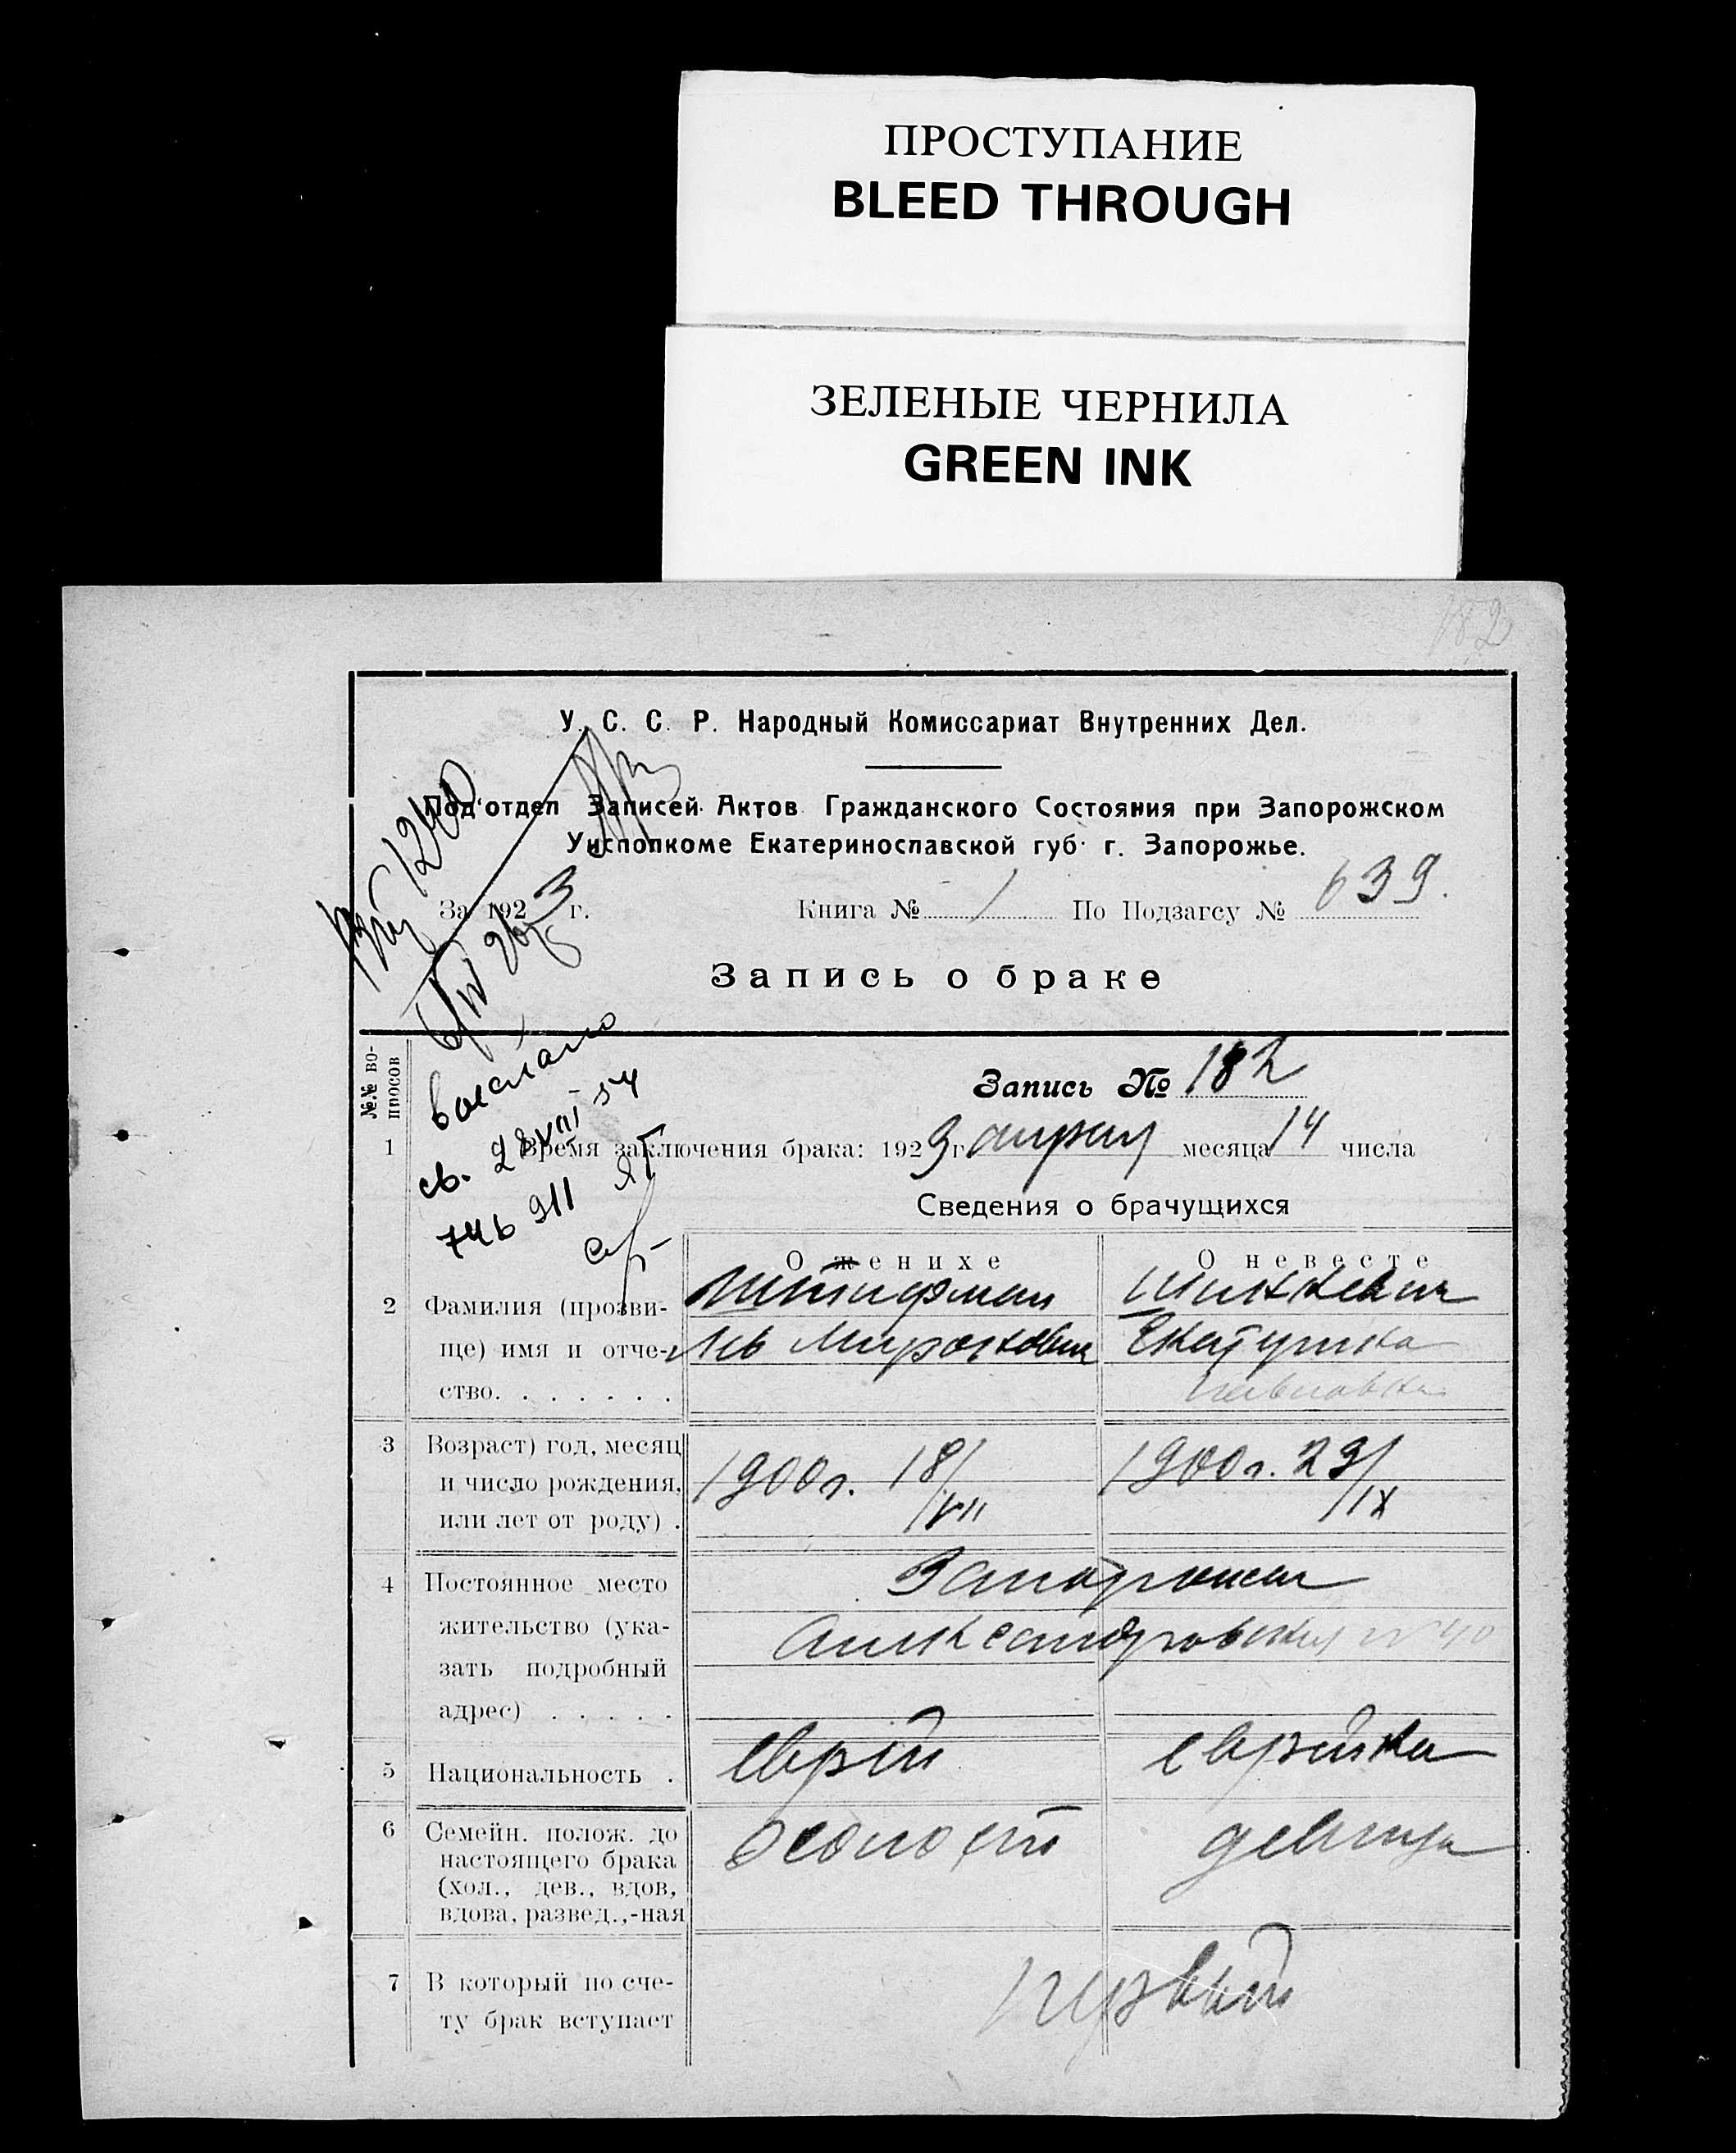 ПРОСТУПАНИЕ
BLEED THROUGH
ЗЕЛЕНЫЕ ЧЕРНИЛА
GREEN INK
182
У. С. С. Р. Народный Комиссариат Внутренних Дел.
Под'отдел Записей Актов Гражданского Состояния при Запорожском
Уисполкоме Екатеринославской губ. г. Запорожье.
За 1923 г. Книга № 1 По Подзагсу № 639.
Запись о браке
12400
выслано
св. 28 VIII 54
746 911
№№ во-
просов
Запись № 182
1 Время заключения брака: 1923 г. апреля месяца 14 числа
Сведения о брачущихся
О женихе О невесте
2 Фамилия (прозви- Штифман Шинкевич
ще) имя и отче- Лев Миронович Екатерина
ство. . . . . . . Павловна
3 Возраст) год, месяц 1900 г. 18/VII 1900 г. 29/IX
и число рождения,
или лет от роду) .
4 Постоянное место Запорожье
жительство (ука- Александровская № 40
зать подробный
адрес) . . . . .
5 Национальность . еврей еврейка
6 Семейн. полож. до холост девица
настоящего брака
(хол., дев., вдов,
вдова, развед.,-ная
7 В который по сче- первый
ту брак вступает